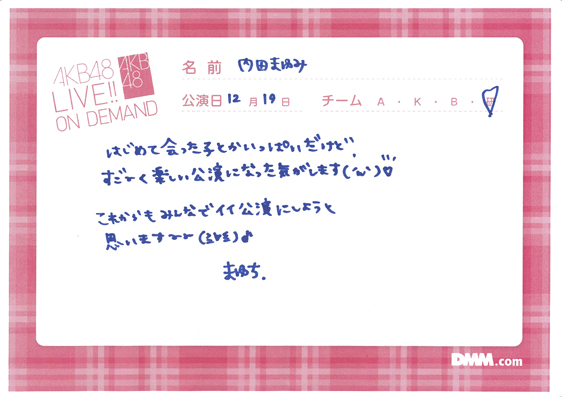 AKB48
LIVE!!
ON DEMAND
AKB
48
名前 内田まゆみ
公演日 12月19日 チーム A・K・B・研
はじめて会った子とかいっぱいだけど、
すごーく楽しい公演になった気がします(^ω^)♡
これからもみんなでイイ公演にしようと
思いますーー
まゆち.
DMM.com